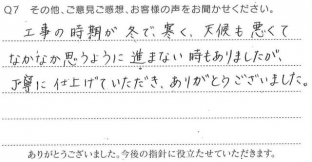 Q7 その他、ご意見ご感想、お客様の声をお聞かせください。
工事の時期が冬で、寒く、天候も悪くて
なかなか思うように進まない時もありましたが、
丁寧に仕上げていただき、ありがとうございました。
ありがとうございました。今後の指針に役立たせていただきます。